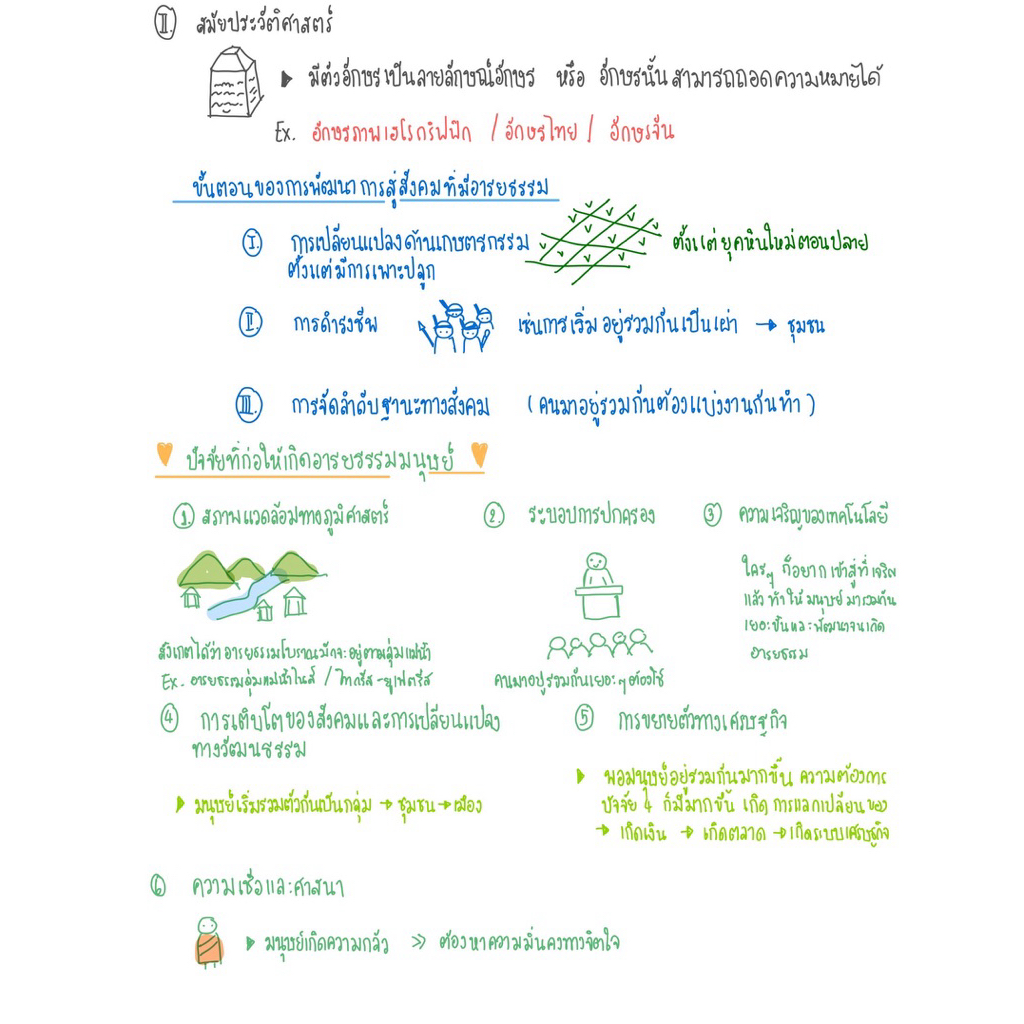 II. สมัยประวัติศาสตร์
มีตัวอักษรเป็นลายลักษณ์อักษร หรือ อักษรนั้นสามารถถอดความหมายได้
Ex. อักษรภาพเฮโรกริฟฟิก / อักษรไทย / อักษรจีน
ขั้นตอนของการพัฒนาการสู่สังคมที่มีอารยธรรม
I. การเปลี่ยนแปลงด้านเกษตรกรรม ตั้งแต่ยุคหินใหม่ตอนปลาย
ตั้งแต่มีการเพาะปลูก
II. การดำรงชีพ เช่นการเริ่มอยู่รวมกันเป็นเผ่า → ชุมชน
III. การจัดลำดับฐานะทางสังคม (คนมาอยู่รวมกันต้องแบ่งงานกันทำ)
ปัจจัยที่ก่อให้เกิดอารยธรรมมนุษย์
1. สภาพแวดล้อมทางภูมิศาสตร์
สังเกตได้ว่าอารยธรรมโบราณมักจะอยู่ตามลุ่มแม่น้ำ
Ex. อารยธรรมลุ่มแม่น้ำไนล์ / ไทกริส-ยูเฟตรีส
2. ระบอบการปกครอง
คนมาอยู่รวมกันเยอะๆต้องใช้
3 ความเจริญของเทคโนโลยี
ใครๆ ก็อยากเข้าสู่ที่เจริญ
แล้วทำให้มนุษย์มารวมกัน
เยอะขึ้นและพัฒนาจนเกิด
อารยธรรม
4 การเติบโตของสังคมและการเปลี่ยนแปลง
ทางวัฒนธรรม
มนุษย์เริ่มรวมตัวกันเป็นกลุ่ม → ชุมชน → เมือง
5 การขยายตัวทางเศรษฐกิจ
พอมนุษย์อยู่รวมกันมากขึ้น ความต้องการ
ปัจจัย 4 ก็มีมากขึ้น เกิดการแลกเปลี่ยนของ
→ เกิดเงิน → เกิดตลาด → เกิดระบบเศรษฐกิจ
6 ความเชื่อและศาสนา
มนุษย์เกิดความกลัว >> ต้องหาความมั่นคงทางจิตใจ